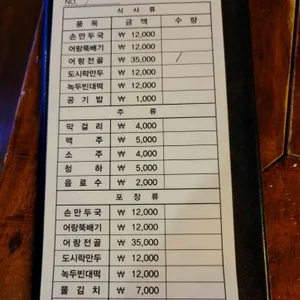 NO. /
식 사 류
품 목 금 액 수 량
손만두국 ₩ 12,000
어랑뚝배기 ₩ 12,000
어랑전골 ₩ 35,000 /
도시락만두 ₩ 12,000
녹두빈대떡 ₩ 12,000
공 기 밥 ₩ 1,000
주 류
막 걸 리 ₩ 4,000
맥 주 ₩ 5,000
소 주 ₩ 4,000
청 하 ₩ 5,000
음 료 수 ₩ 2,000
포 장 류
손만두국 ₩ 12,000
어랑뚝배기 ₩ 12,000
어랑전골 ₩ 35,000
도시락만두 ₩ 12,000
녹두빈대떡 ₩ 12,000
물 김 치 ₩ 7,000